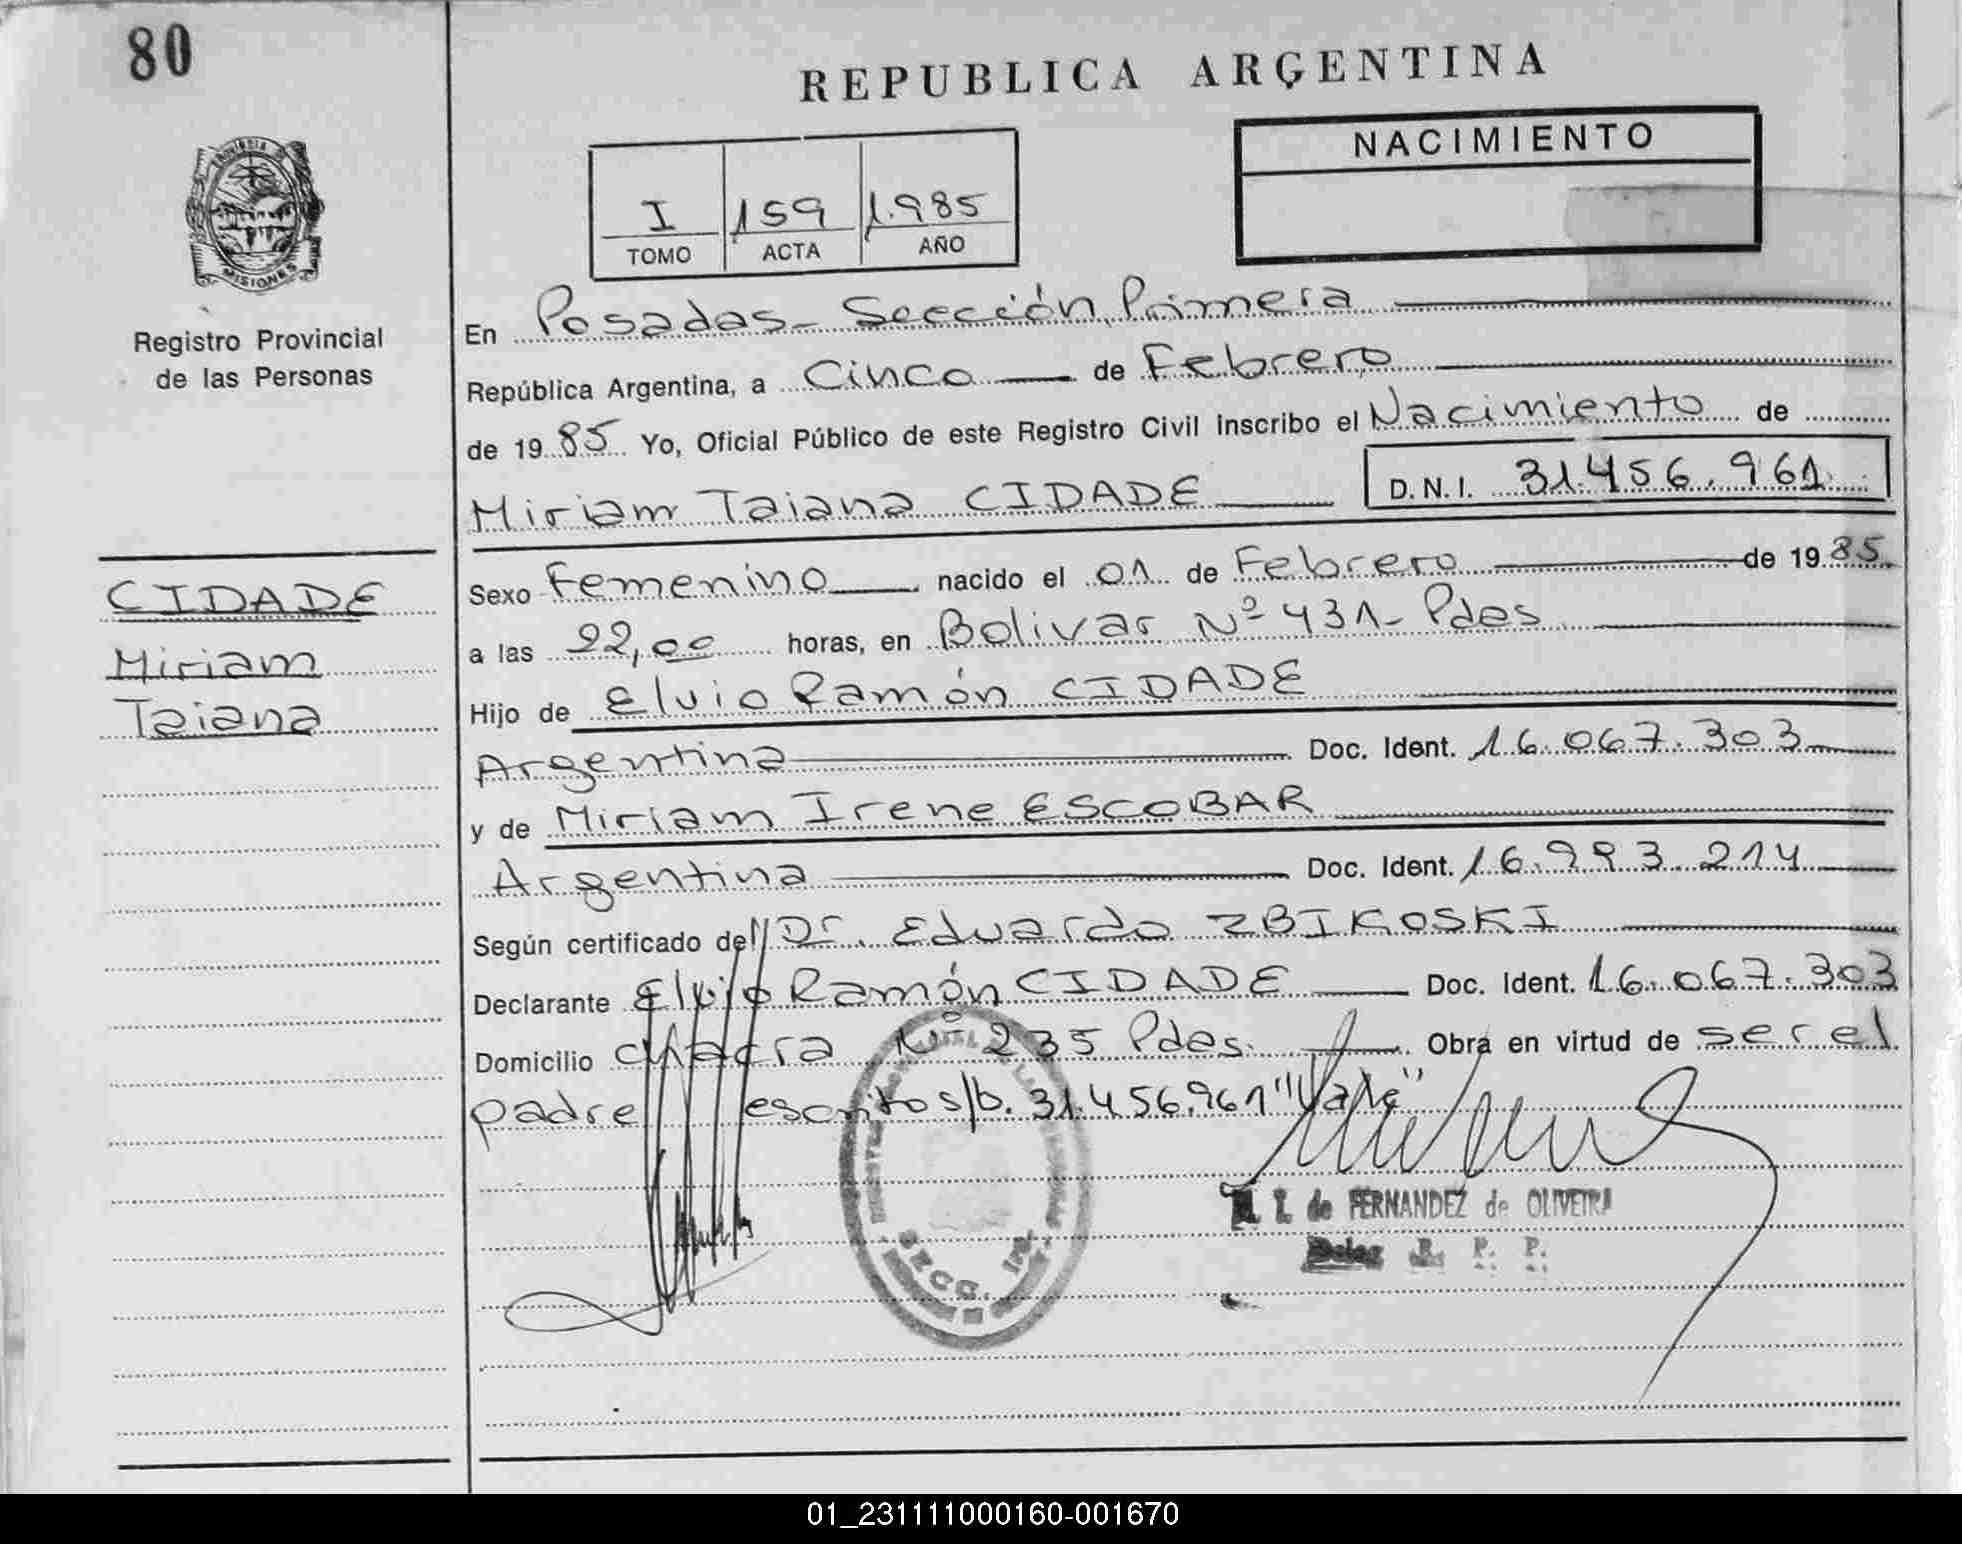 80
REPUBLICA ARGENTINA
NACIMIENTO
I 159 1.985
TOMO ACTA AÑO
MISIONES
Registro Provincial
de las Personas
En Posadas - Sección Primera
República Argentina, a Cinco de Febrero
de 1985 Yo, Oficial Público de este Registro Civil inscribo el Nacimiento de
Miriam Taiana CIDADE D.N.I. 31.456.961
CIDADE
Miriam
Taiana
Sexo Femenino nacido el 01 de Febrero de 1985
a las 22,00 horas, en Bolivar Nº 431- Pdas
Hijo de Elvio Ramón CIDADE
Argentina Doc. Ident. 16.067.303
y de Miriam Irene ESCOBAR
Argentina Doc. Ident. 16.993.214
Según certificado del Dr. Eduardo ZBIKOSKI
Declarante Elvio Ramón CIDADE Doc. Ident. 16.067.303
Domicilio chacra Nº 235 Pdas. Obra en virtud de ser el
padre escrito s/b. 31.456.961 "Vale"
SECC.
I. de FERNANDEZ de OLIVEIRA
Deleg R. P. P.
01_231111000160-001670